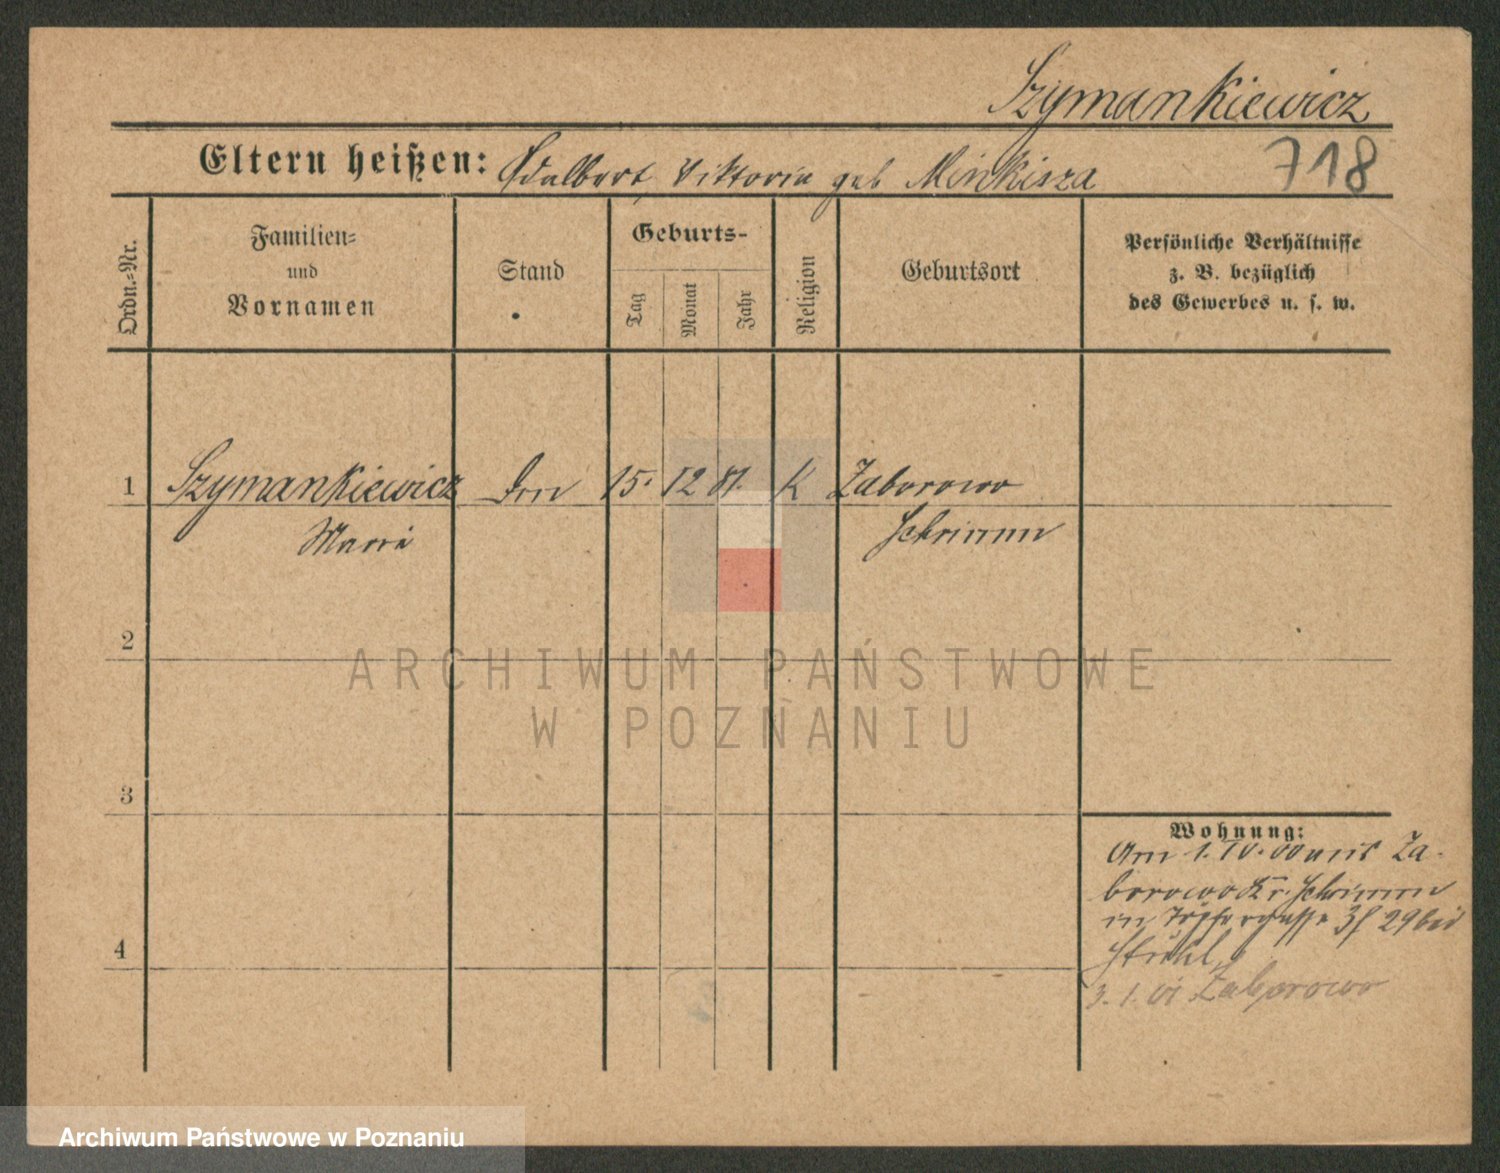 Szymankiewicz
Eltern heißen: Adalbert, Viktoria geb Minkisza
718
Ordn.-Nr.
Familien-
und
Vornamen
Stand
Geburts-
Tag
Monat
Jahr
Religion
Geburtsort
Persönliche Verhältnisse
z. B. bezüglich
des Gewerbes u. s. w.
1 Szymankiewicz 15. 12 81. K Zaborowo
Maria Schrimm
2
ARCHIWUM PAŃSTWOWE
W POZNANIU
3
Wohnung:
Am 1. IV. 00 aus Za-
borowo Kr. Schrimm
in 29 bei
4
3. 1. 01 Zaborowo
Archiwum Państwowe w Poznaniu